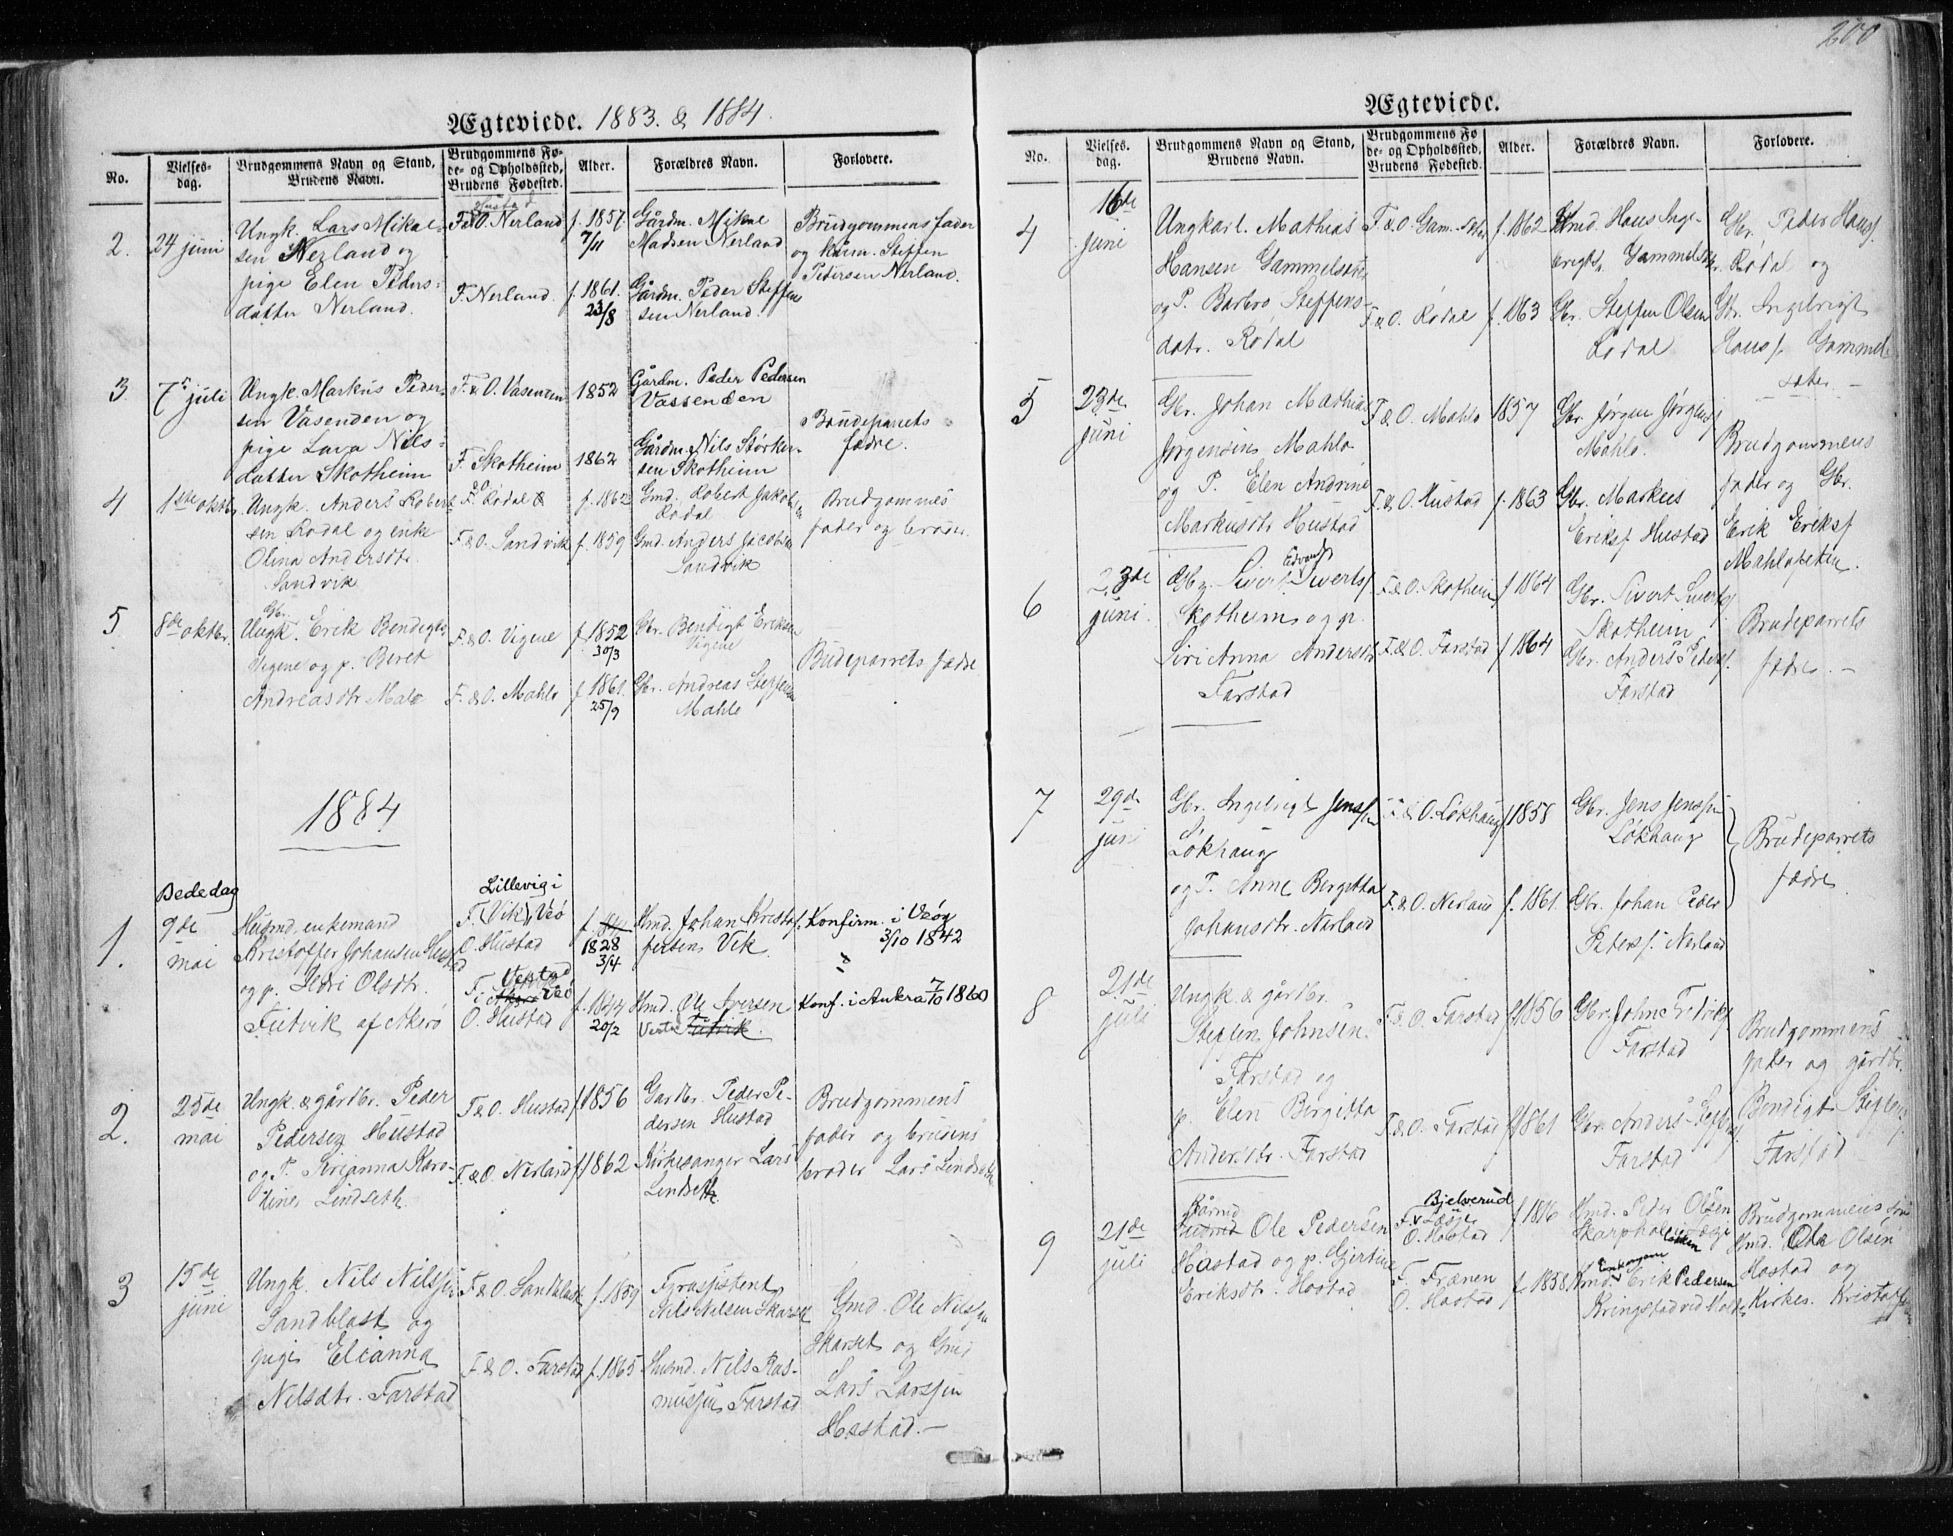 200
Ægteviede. 1883. & 1884.
No.
Vielses-
dag.
Brudgommens Navn og Stand,
Brudens Navn.
Brudgommens Fø-
de- og Opholdssted,
Brudens Fødested.
Alder.
Forældres Navn.
Forlovere.
2.
24 juni
Ungk. Lars Mikal-
sen Nerland og
pige Elen Peders-
datter Nerland.
Hustad
F. & O. Nerland
F. Nerland.
f. 1857
7/11
f. 1861.
23/8
Gårdm. Mikal
Madsen Nerland
Gårdm. Peder Steffen
sen Nerland.
Brudgommens fader
og Steffen
Pedersen Nerland.
3.
7de juli
Ungk. Markus Peder-
sen Vasenden og
pige Lava Nils-
datter Skotheim
F. & O. Vasenden
F. Skotheim
1852
1862
Gårdm. Peder Pedersen
Vassenden
Gårdm. Nils Størker-
sen Skotheim
Brudeparrets
fædre.
4
1ste oktbr
Ungk. Anders Robert-
sen Rødal og enke
Olina Andersdtr.
Sandvik
F. Rødal &
F. & O. Sandvik
f. 1862
f. 1859
Gmd. Robert Jakobsen
Rødal
Gmd. Anders Jacobsen
Sandvik
Brudgommes
fader og broder.
5
8de oktbr.
Gbr.
Ungk. Erik Bendigts.
Vigene og p. Beret
Andreasdtr Malo
F. & O. Vigene
F. & O. Mahlo
f. 1852
30/3
f. 1861.
25/9
Gbr. Bendigt Eriksen
Vigene
Gbr. Andreas Steffensen
Mahlo
Budeparrets fædre
1884
1.
Bededag
9de
mai
Husmd. enkemand
Kristoffer Johansen Hustad
og p. Sidri Olsdtr.
Futvik af Akerø
Lillevig i
F. (Vik) Veø
O. Hustad
F. Vestad
i Akerø Veø
O. Hustad
1828
3/4
f. 1844
20/2
Hmd. Johan Kristof-
fersen Vik
Hmd. Ole Iversen
Vestad Futvik.
Konfirm. i Veøy
3/10 1842
Konf. i Aukra 7/10 1860
2.
25de
mai
Ungk. & gårdbr. Peder
Pedersen Hustad
og P. Sirianna Karo-
line Lindseth
F. & O. Hustad
F. & O. Nerland
f. 1856
f. 1862
Gardbr. Peder Pe-
dersen Hustad
Kirkesanger Lars
Lindseth
Brudgommens
fader og brudens
broder Lars Lindseth
3
15de
juni
Ungk. Nils Nilssen
Sandblåst og
pige Elianna
Nilsdtr. Farstad
F. & O. Sandblåst
F. & O. Farstad
f. 1859
f. 1865
Fyrassistent
Nils Nilsen Skarset
Husmd. Nils Ras-
mussen Farstad
Gmd. Ole Nilssen
Skarset og Gmd
Lars Larssen
Hostad.
Ægteviede.
No.
Vielses-
dag.
Brudgommens Navn og Stand,
Brudens Navn.
Brudgommens Fø
de- og Opholdssted
Brudens Fødested.
Alder.
Forældres Navn.
Forlovere.
4
16de
juni
Ungkarl. Mathias
Hansen Gammelsæter
og P. Barbro Steffens-
datr. Rødal
F. & O. Gam. sæter
F. & O. Rødal
f. 1862
f. 1863
Gmd. Hans Inge-
brigts. Gammelsæter
Gbr. Steffen Olsen
Rødal
Gbr. Peder Hanss.
Rødal og
Gbr. Ingebrigt
Hanss. Gammel-
sæter.
5
22de
juni
Gbr. Johan Mathias
Jørgensen Mahlo
og P. Elen Andrine
Markusdtr Hustad
F. & O. Mahlo
F. & O. Hustad
1857
f. 1863
Gbr Jørgen Jørgens.
Mahlo.
Gbr. Markus
Eriks. Hustad
Brudgommens
fader og Gbr.
Erik Eriks.
6
23de
juni.
Gbr. Sivert Edvard Siverts.
Skotheim og p.
Siri Anna Andersdtr
Farstad
F. & O. Skotheim
F. & O. Farstad
f 1864
f. 1864
Gbr. Sivert Siverts.
Skotheim
Gbr. Anders Peders.
Farstad
Brudeparrets
fædre.
7
29de
juni
Gbr. Ingebrigt Jenssen
Løkhaug
og P. Anne Bergitta
Johansdtr. Nerland
F. & O. Løkhaug
F. & O. Nerland
f 1858
f. 1861.
Gbr. Jens Jenssen
Løkhaug
Gbr. Johan Peder
Peters. Nerland
Brudeparrets
fædre.
8
21de
juli
Ungk. & gårdbr.
Steffen Johnsen
Farstad og
p. Elen Birgitta
Andersdtr. Farstad
F. & O. Farstad
F. & O. Farstad
f. 1856
f. 1861
Gbr. John Fredriks.
Farstad
Gbr. Anders Steffens.
Farstad
Brudgommens
fader og gårdbr.
Bendigt Steffens.
Farstad
9
21de
juli
Gårmd
Ole Pedersen
Hostad og p. Gjertine
Eriksdtr. Hostad
Bjelverud
F. Læsje
O. Hostad
F. Frænen
O. Hostad
f 1816
f. 1858.
Hmd. Peder Olsen
Skarpholen Læsje
Erik Pedersen
Kringstad ved Molde
Brudgommens søn
Hmd. Ole Olsen
Hostad og
Kirkes. Kristoffersen